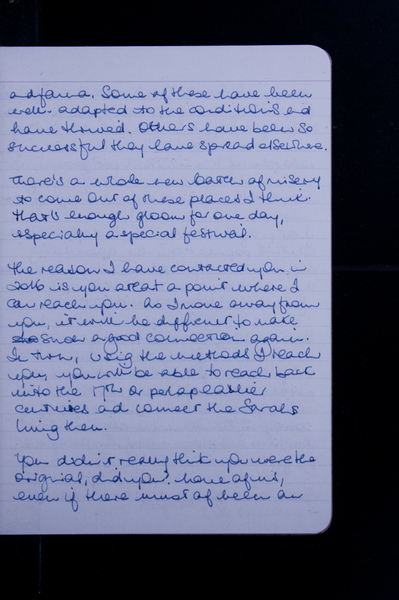 and fauna. Some of these have been
well adapted to the conditions and
have thrived. Others have been so
successful they have spread elsewhere.
There's a whole new batch of misery
to come out of these places I think.
That's enough gloom for one day,
especially a special festival.
The reason I have contacted you in
2016 is you are at a point where I
can reach you. As I move away from
you, it will be difficult to make
such a good connection again.
In turn, using the methods I reach
you, you will be able to reach back
into the 17th or perhaps earlier
centuries and connect the Sarahs
living then.
You didn't really think you were the
original, did you? None of us is,
even if there must of been an